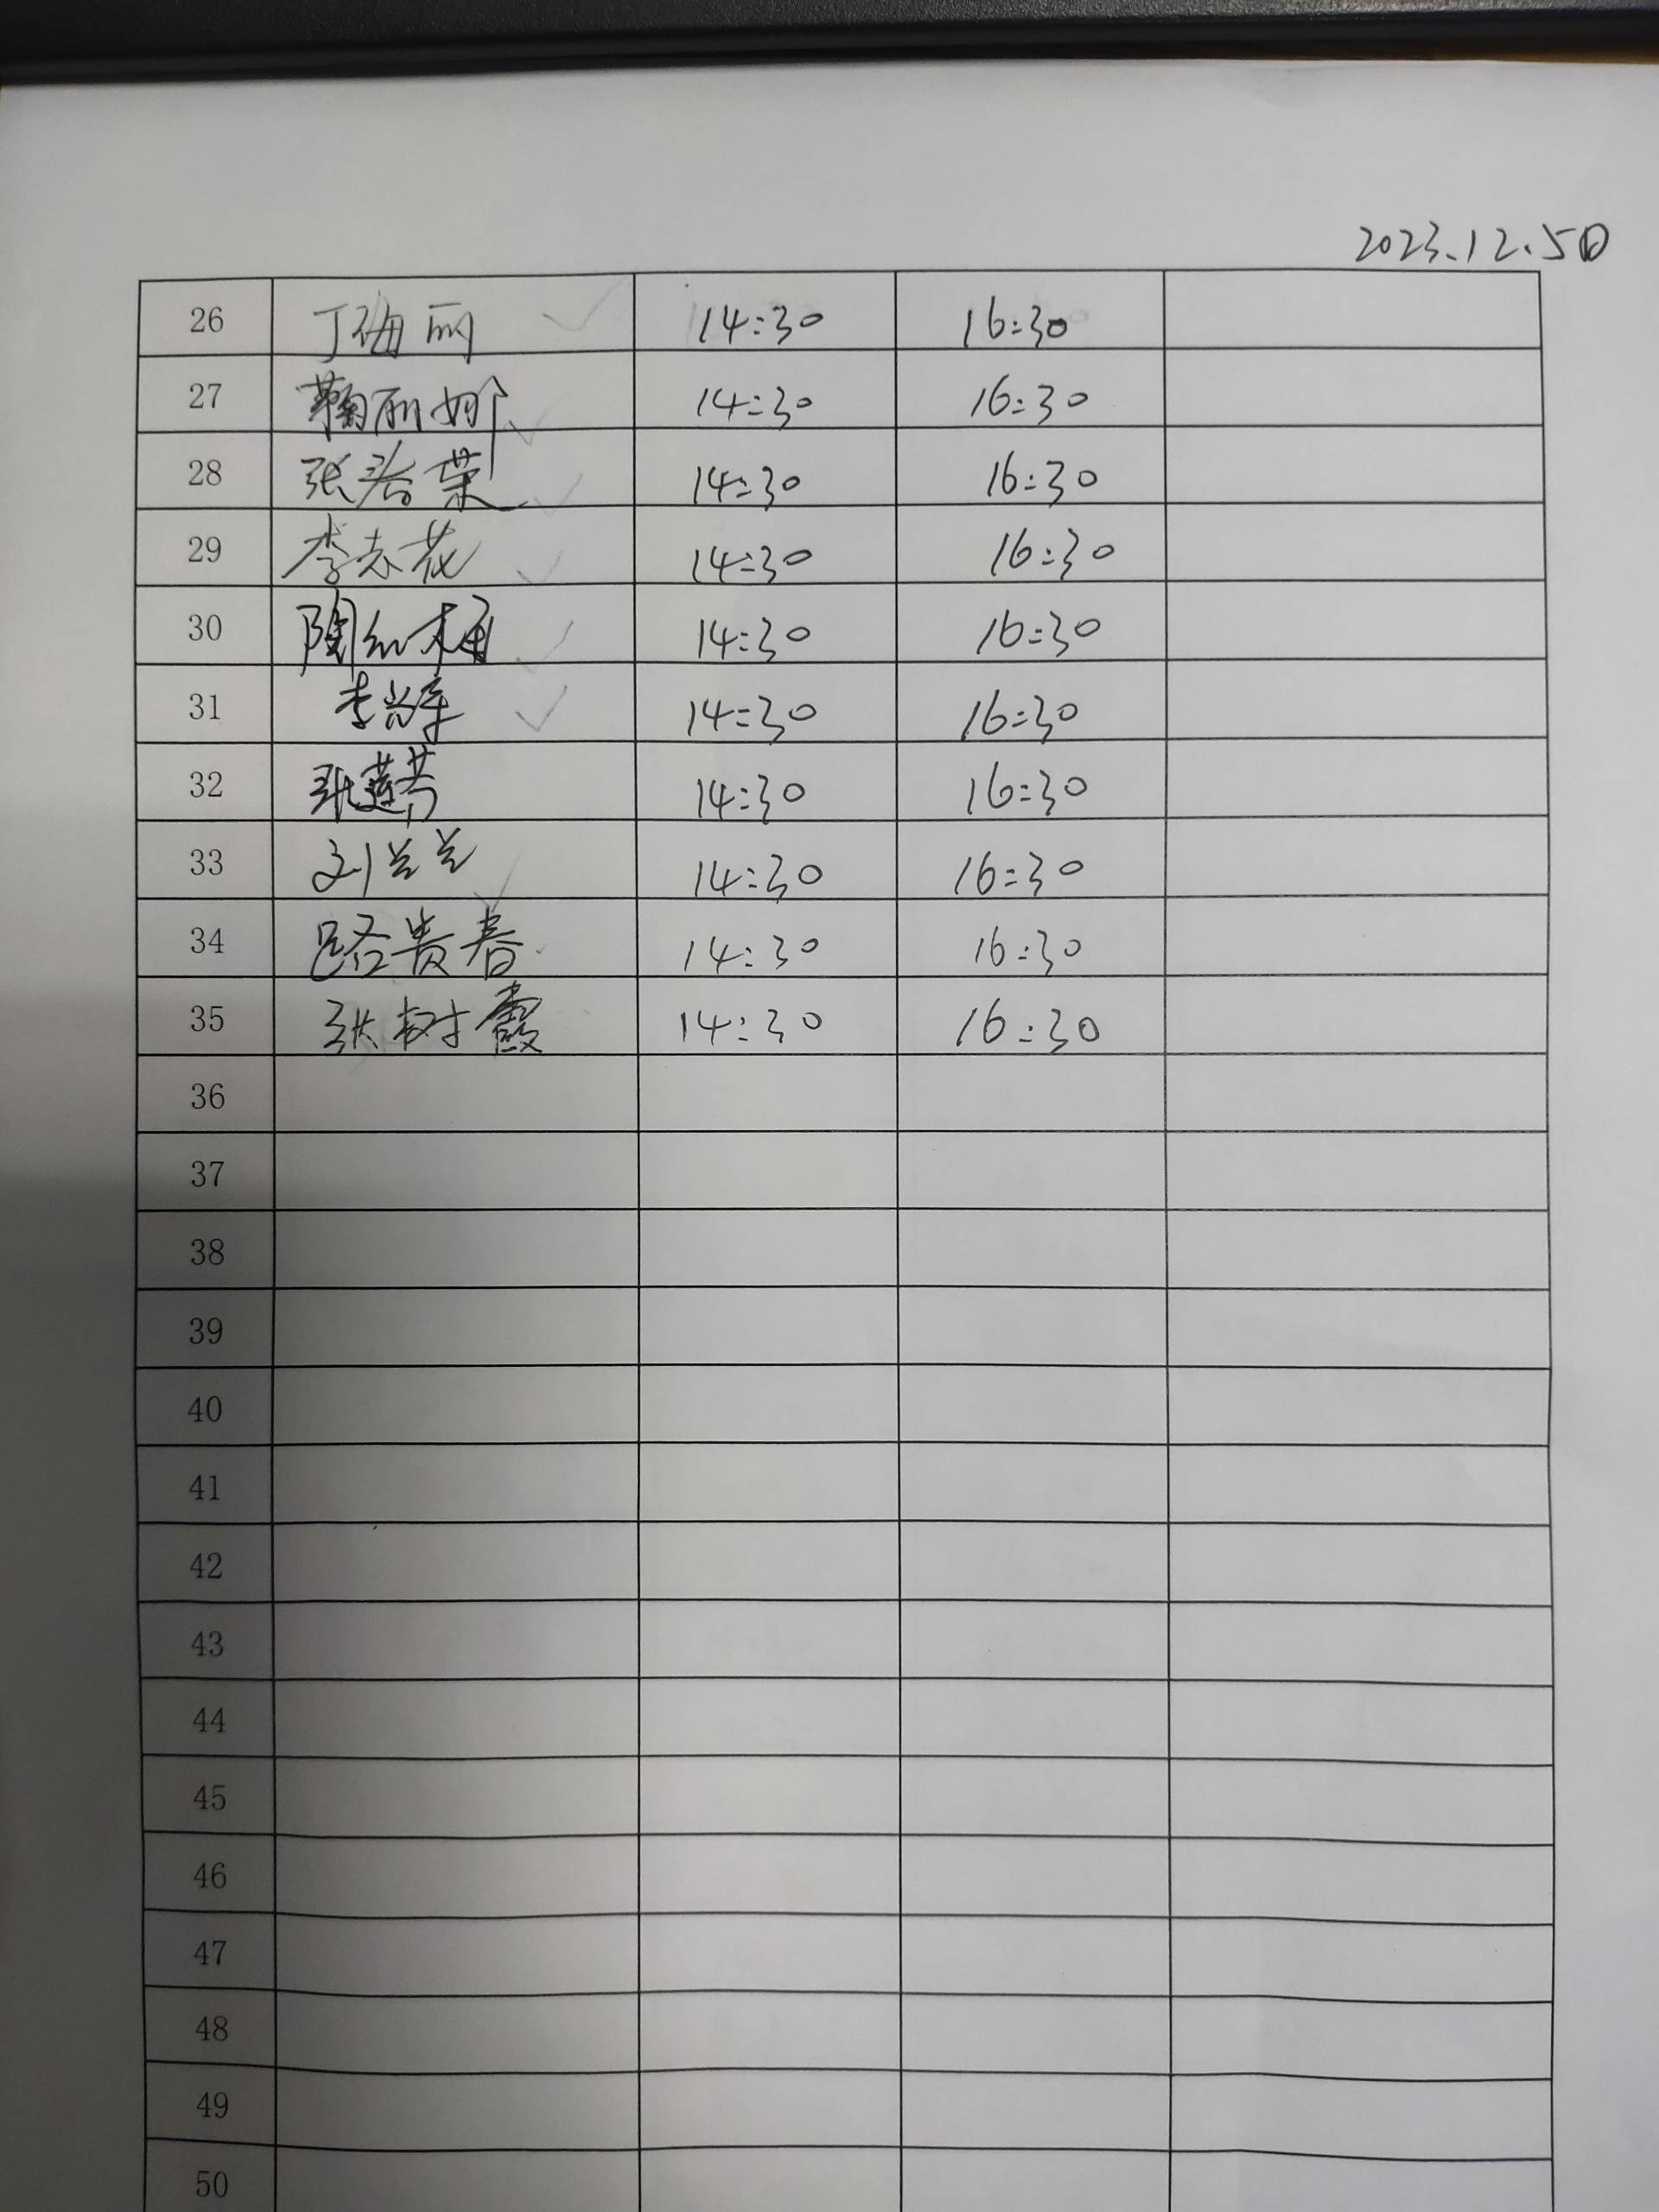 2023.12.5日
26 丁梅丽 14:30 16:30
27 鞠丽娜 14:30 16:30
28 张春荣 14:30 16:30
29 李志花 14:30 16:30
30 陶红梅 14:30 16:30
31 李兴军 14:30 16:30
32 张莲芳 14:30 16:30
33 刘兰兰 14:30 16:30
34 路贵春 14:30 16:30
35 张树霞 14:30 16:30
36
37
38
39
40
41
42
43
44
45
46
47
48
49
50